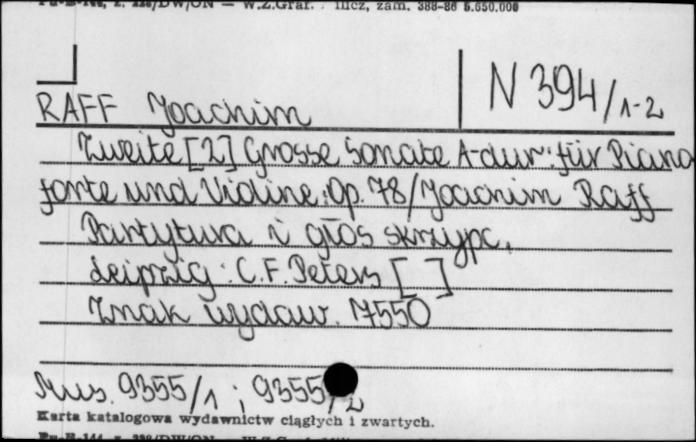 Pu-H-144, z. 228/DW/ON — W.Z.Graf. . Ilicz, zam. 388-86 5.650.000
N 394/1-2
RAFF Joachim
Zweite [2] Grosse Sonate A-dur: für Piano
forte und Violine: Op. 78/Joachim Raff
Partytura i głos skrzypc.
Leipzig: C.F. Peters [ ]
Znak wydaw. 7550
Mus. 9355/1 ; 9355/2
Karta katalogowa wydawnictw ciągłych i zwartych.